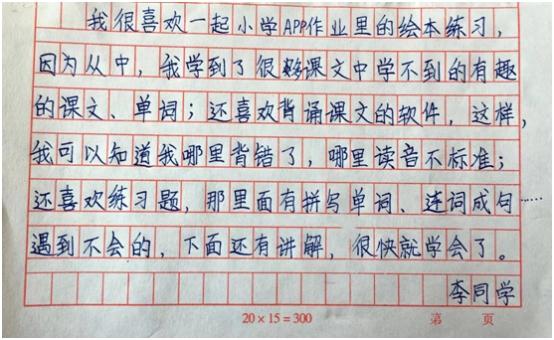 我很喜欢一起小学APP作业里的绘本练习，
因为从中，我学到了很多课文中学不到的有趣
的课文、单词；还喜欢背诵课文的软件，这样，
我可以知道我哪里背错了，哪里读音不标准；
还喜欢练习题，那里面有拼写单词、连词成句……
遇到不会的，下面还有讲解，很快就学会了。
李同学
20×15=300 第 页